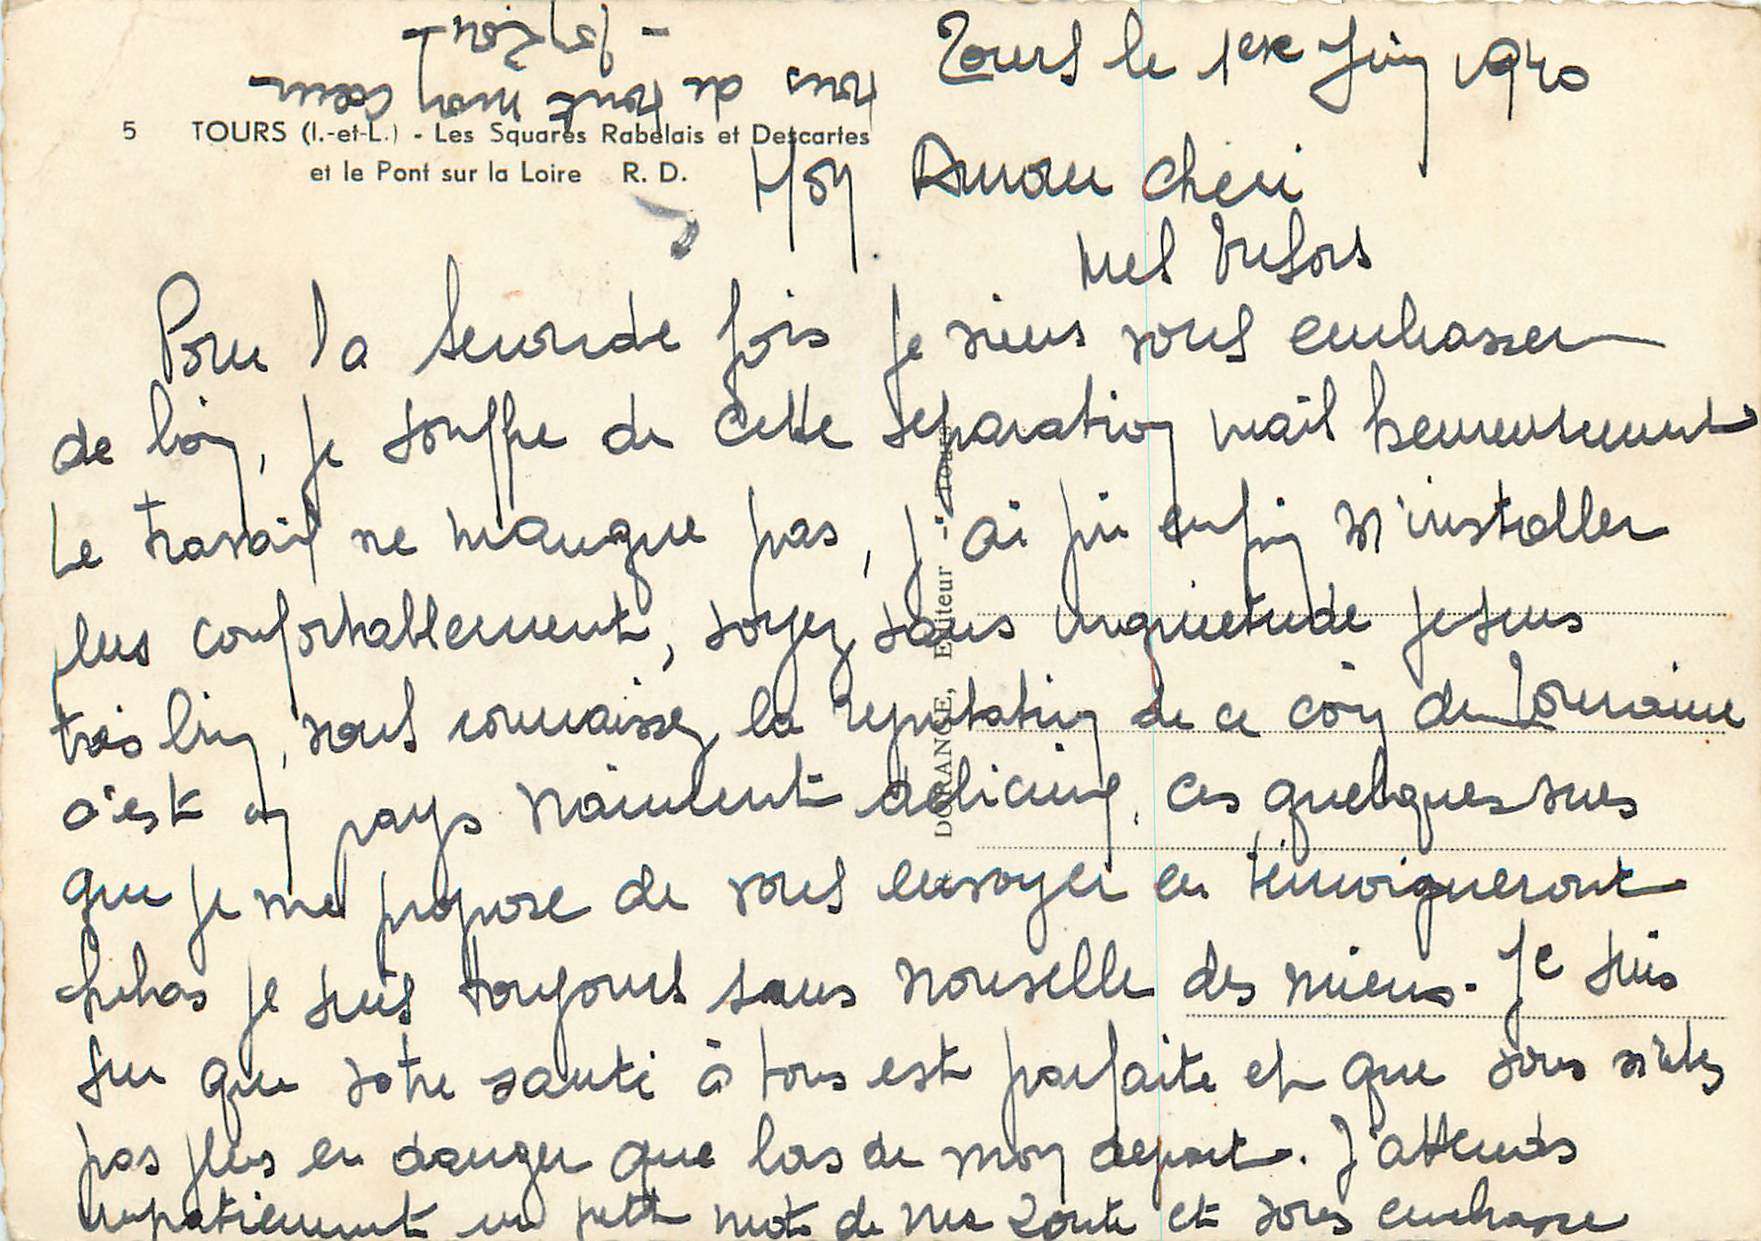 Tours le 1ere Juin 1940
5 TOURS (I.-et-L.) - Les Squares Rabelais et Descartes
et le Pont sur la Loire R. D.
Mon Amour cheri
mes tresors
Pour la seconde fois je viens vous embrasser
de loin, je souffre de cette separation mais heureusement
le travail ne manque pas, j'ai pu enfin m'installer
plus confortablement, soyez sans inquietude je suis
très bien, vous connaissez la reputation de ce coin de Touraine
c'est un pays vraiment delicieux, ces quelques vues
que je me propose de vous envoyer en témoigneront
helas je suis toujours sans nouvelle des miens. Je suis
sur que votre santé à tous est parfaite et que vous n'etes
pas plus en danger que lors de mon depart. J'attends
impatiemment un petit mot de ma et vous embrasse
tous de tout mon coeur
DORANGE, Editeur - Tours